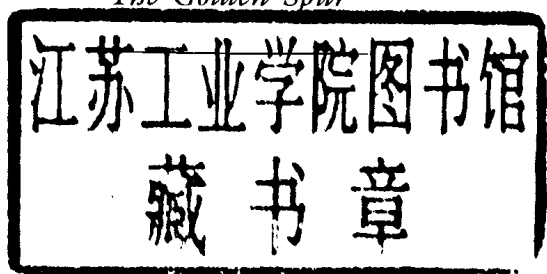 The Golden Spur
江苏工业学院图书馆
藏书章